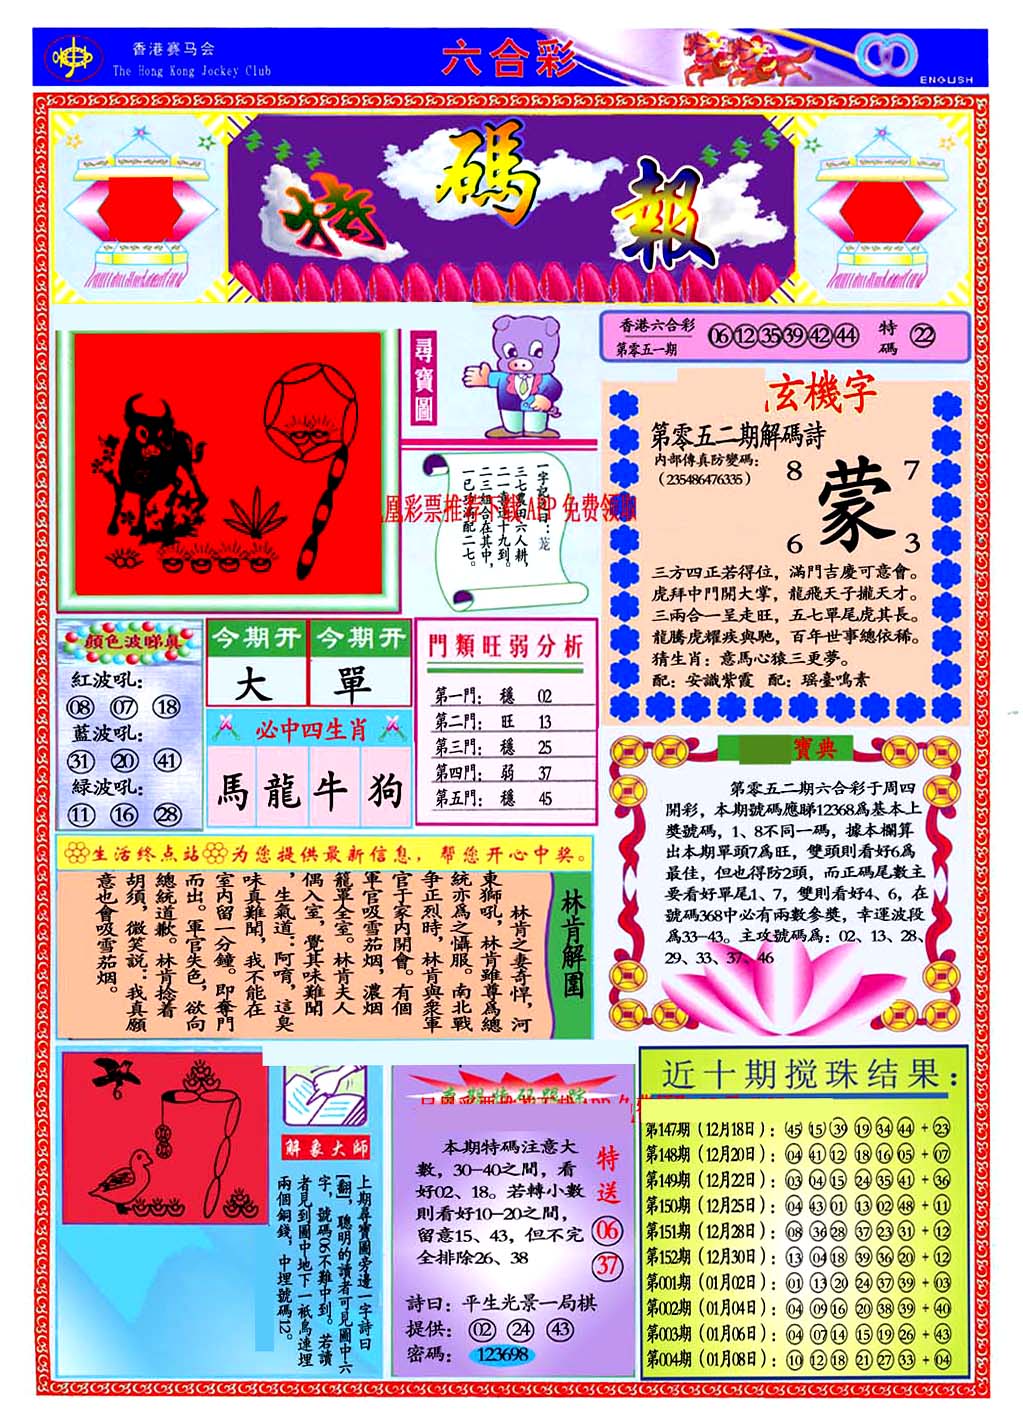 香港赛马会
The Hong Kong Jockey Club
六合彩
ENGLISH
特碼報
尋寶圖
香港六合彩
第零五一期
06 12 35 39 42 44
特碼
22
玄機字
第零五二期解碼詩
内部傳真防變碼:
(235486476335)
8 7
蒙
6 3
三方四正若得位，滿門吉慶可意會。
虎拜中門開大掌，龍飛天子攏天才。
三兩合一呈走旺，五七單尾虎其長。
龍騰虎耀疾與馳，百年世事總依稀。
猜生肖：意馬心猿三更夢。
配：安識紫霞 配：瑶臺鳴素
一字記之曰：茏
三七農田六人耕，
二一喜進十九到。
二三組合在其中，
一已功滿配二七。
凰彩票推荐下载APP免费领取
顔色波睇真
紅波吼：
08 07 18
藍波吼：
31 20 41
緑波吼：
11 16 28
今期开 今期开
大 單
必中四生肖
馬 龍 牛 狗
門類旺弱分析
第一門： 穩 02
第二門： 旺 13
第三門： 穩 25
第四門： 弱 37
第五門： 穩 45
寶典
第零五二期六合彩于周四
開彩，本期號碼應睇12368爲基本上
獎號碼，1、8不同一碼，據本欄算
出本期單頭7爲旺，雙頭則看好6爲
最佳，但也得防2頭，而正碼尾數主
要看好單尾1、7，雙則看好4、6，在
號碼368中必有兩數參獎，幸運波段
爲33-43。主攻號碼爲：02、13、28、
29、33、37、46
生活终点站 为您提供最新信息，帮您开心中奖。
林肯解圍
林肯之妻奇悍，河
東獅吼，林肯雖尊爲總
統亦爲之懾服。南北戰
争正烈時，林肯與衆軍
官于家内開會。有個
軍官吸雪茄烟，濃烟
籠罩全室。林肯夫人
偶入室，覺其味難聞
，生氣道：阿唷，這臭
味真難聞，我不能在
室内留一分鐘。即奪門
而出。軍官失色，欲向
總統道歉。林肯捻着
胡須，微笑説：我真願
意也會吸雪茄烟。
6
解象大師
上期尋寶圖旁邊一字詩曰
[翻]，聰明的讀者可見圖中六
字，號碼06不難中到。若讀
者見到圖中地下一衹鳥連埋
兩個銅錢，中埋號碼12。
本期特码跟踪
本期特碼注意大
數，30-40之間，看
好02、18。若轉小數
則看好10-20之間，
留意15、43，但不完
全排除26、38
特送
06
37
詩曰：平生光景一局棋
提供： 02 24 43
密碼： 123698
近十期搅珠结果：
第147期（12月18日）：45 15 39 19 34 44 + 23
第148期（12月20日）：04 41 12 18 16 05 + 07
第149期（12月22日）：03 04 15 24 35 41 + 36
第150期（12月25日）：04 43 01 13 02 48 + 11
第151期（12月28日）：08 36 28 37 23 31 + 12
第152期（12月30日）：13 04 18 39 36 20 + 12
第001期（01月02日）：01 13 20 24 37 39 + 03
第002期（01月04日）：04 09 16 20 38 39 + 40
第003期（01月06日）：04 07 14 15 19 26 + 43
第004期（01月08日）：10 12 18 21 27 33 + 04